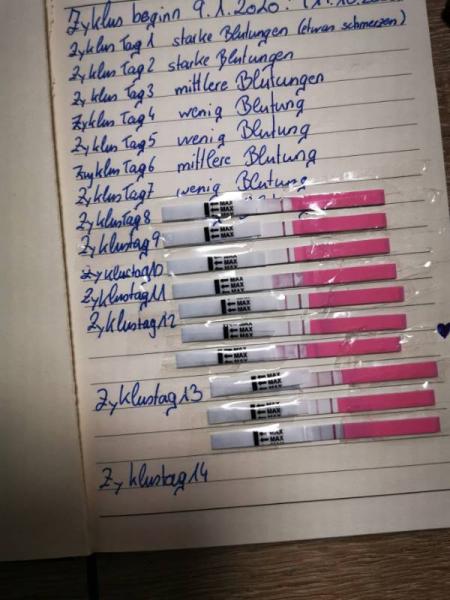 Zyklus beginn 9.1.2020
Zyklus Tag 1 starke Blutungen (etwas schmerzen)
Zyklus Tag 2 starke Blutungen
Zyklus Tag 3 mittlere Blutungen
Zyklus Tag 4 wenig Blutung
Zyklus Tag 5 wenig Blutung
Zyklus Tag 6 mittlere Blutung
Zyklus Tag 7 wenig Blutung
Zyklus Tag 8
MAX
MAX
Zyklustag 9
MAX
MAX
Zyklustag 10
MAX
Zyklustag 11
MAX
MAX
Zyklustag 12
MAX
MAX
MAX
MAX
MAX
MAX
Zyklustag 13
MAX
MAX
MAX
MAX
MAX
Zyklustag 14